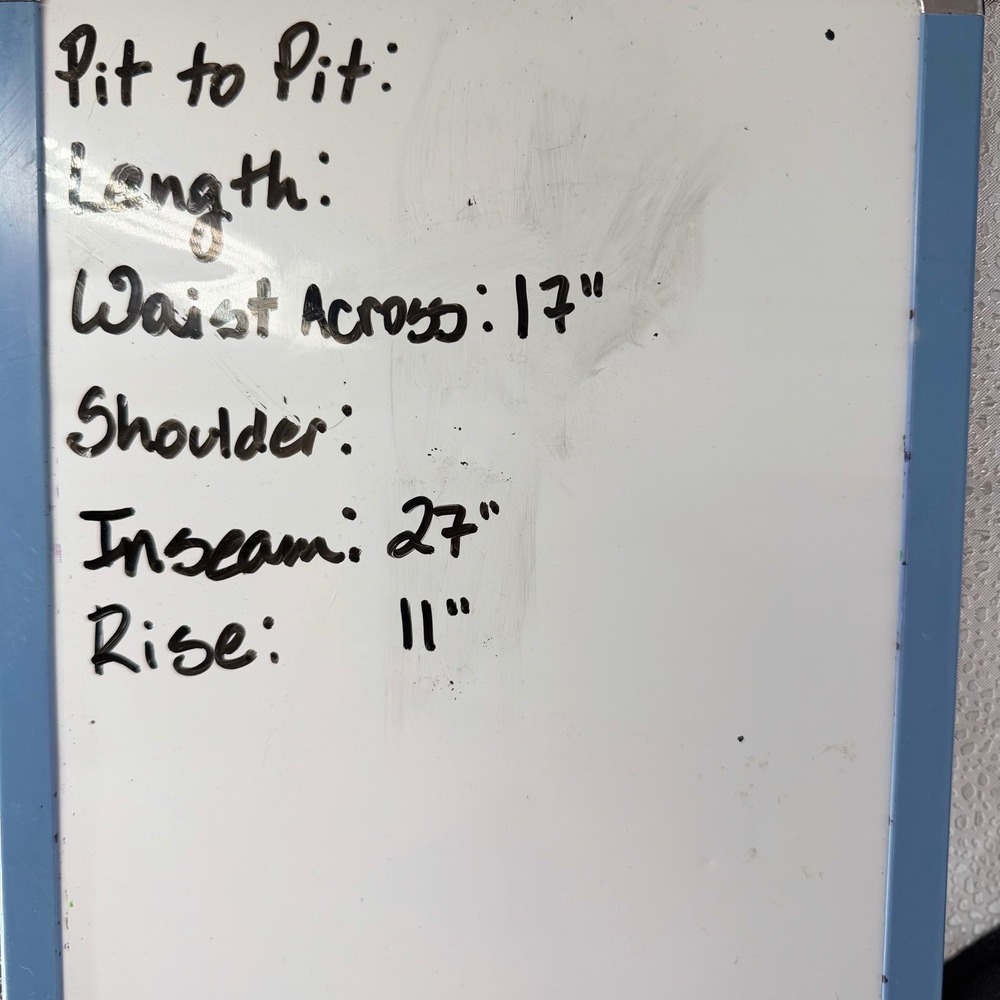 Pit to Pit:
Length:
Waist Across: 17"
Shoulder:
Inseam: 27"
Rise: 11"